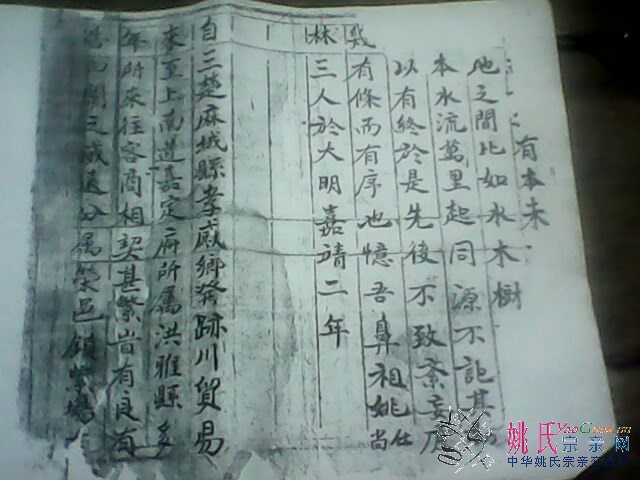 有本末
地之間比如水木樹
本水流萬里起同源不記其
以有終於是先後不致紊妄
有條而有序也憶吾鼻祖姚仕
尚
林
三人於大明嘉靖二年
自三楚麻城縣孝感鄉發跡川貿易
來至上南道嘉定府所屬洪雅縣多
年所來往客商相契甚繁皆有良有
之成遂分屬榮邑鎮紫場
姚氏宗亲网
YaoGens
中华姚氏宗亲